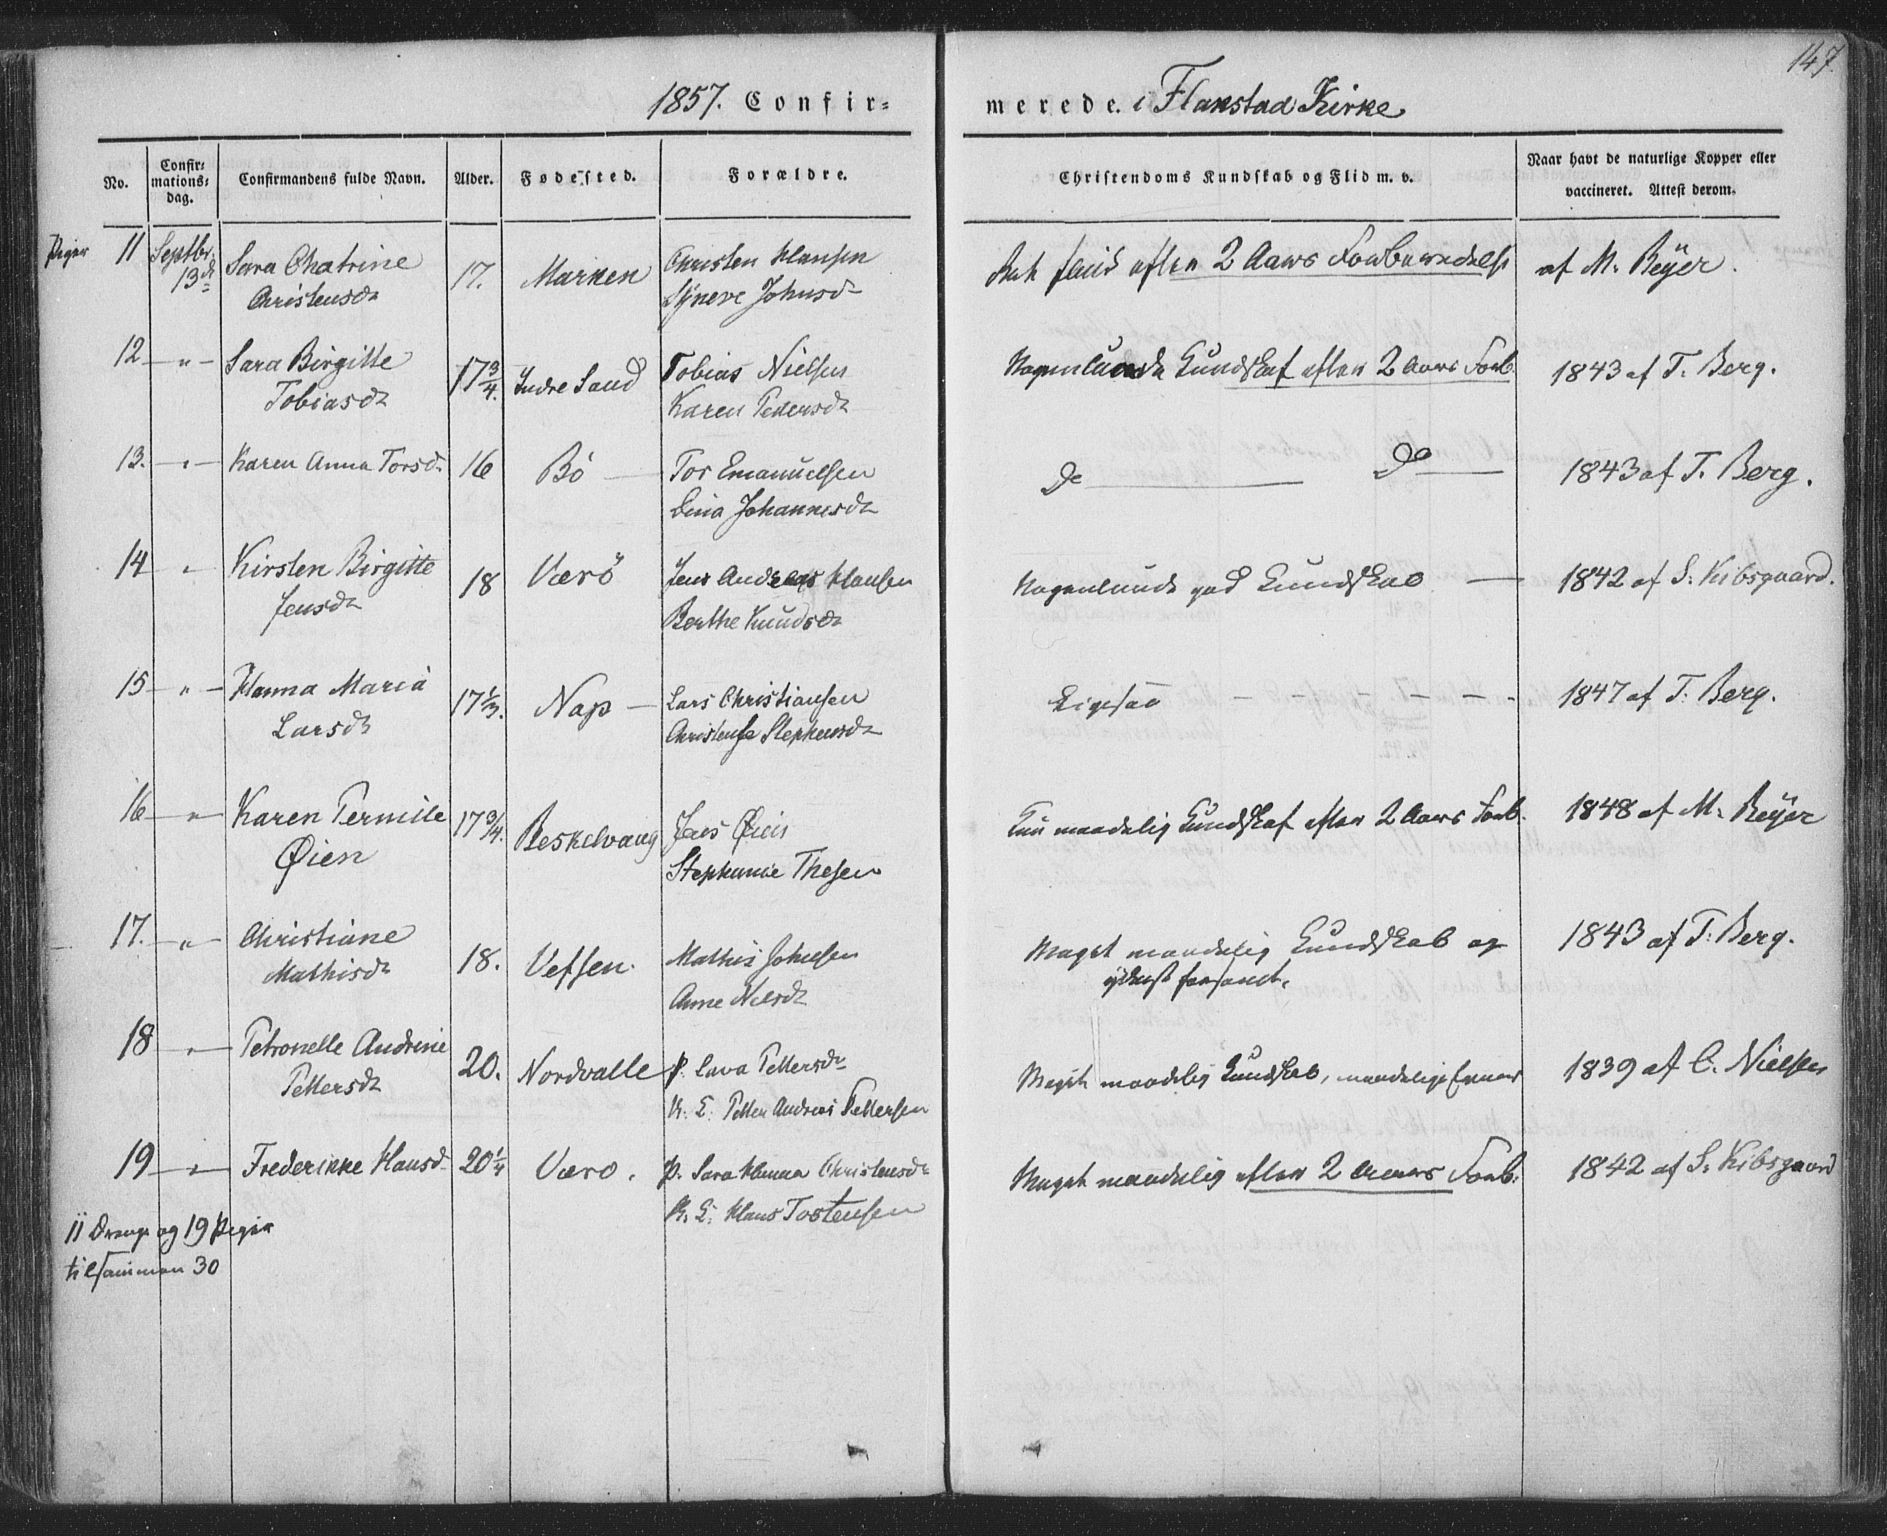 147.
1857. Confir=
merede. i Flakstad Kirke
No.
Confir=
mations=
dag.
Confirmandens fulde Navn.
Alder.
Fødested.
Forældre.
Christendoms Kundskab og Flid m. v.
Naar havt de naturlige Kopper eller
vaccineret. Attest derom.
Piger 11 Septbr. Sara Chatrine 17. Marken Christen Hansen efter 2 Aars Forberedelse af M. Beÿer.
13de Christensdr Sÿneve Johnsdr
12 — " — Sara Birgitte 17 3/4. Indre Sand Tobias Nielsen Nogenlunde Kundskab efter 2 Aars Forb. 1843 af T. Berg.
Tobiasdr Karen Pedersdr
13. — " — Karen Anna Torsdr 16 Bö — Tor Emanuelsen Do — Do — 1843 af T. Berg.
Lina Johannesdr
14 " Kirsten Birgitte 18 Værö Jens Andreas Hansen Nogenlunde god Kundskab — 1842 af S. Kibsgaard.
Jensdr Berthe Knudsdr
15 — " — Hanna Maria 17 1/3. Nap — Lars Christiansen Ligesaa - - - - 1847 af T. Berg.
Larsdr Christense Stephensdr
16 — " Karen Pernille 17 3/4. Beskelvaag Jens Øien Kun maadelig Kundskab efter 2 Aars Forb. 1848 af M. Beÿer
Øien Stephanie Thesen
17. — " — Christiane 18. Vefsen. Mathis Johnsen Meget maadelig Kundskab og 1843 af T. Berg.
Mathisdr Anne Nilsdr yderst forsømt.
18 — " — Petronelle Andrine 20. Nordvalle p. Lava Pettersdr Meget maadelig Kundskab, maadelige Evner 1839 af C. Nielsen
Pettersdr K. E. Petter Andreas Pettersen
19 — " — Frederikke Hansdr 20 1/4 Værö. p. Sara Hanna Christensdr Meget maadelig efter 2 Aars Forb. 1842 af S. Kibsgaard
K. E. Hans Tostensen
11 Drenge og 19 Piger
tilsammen 30